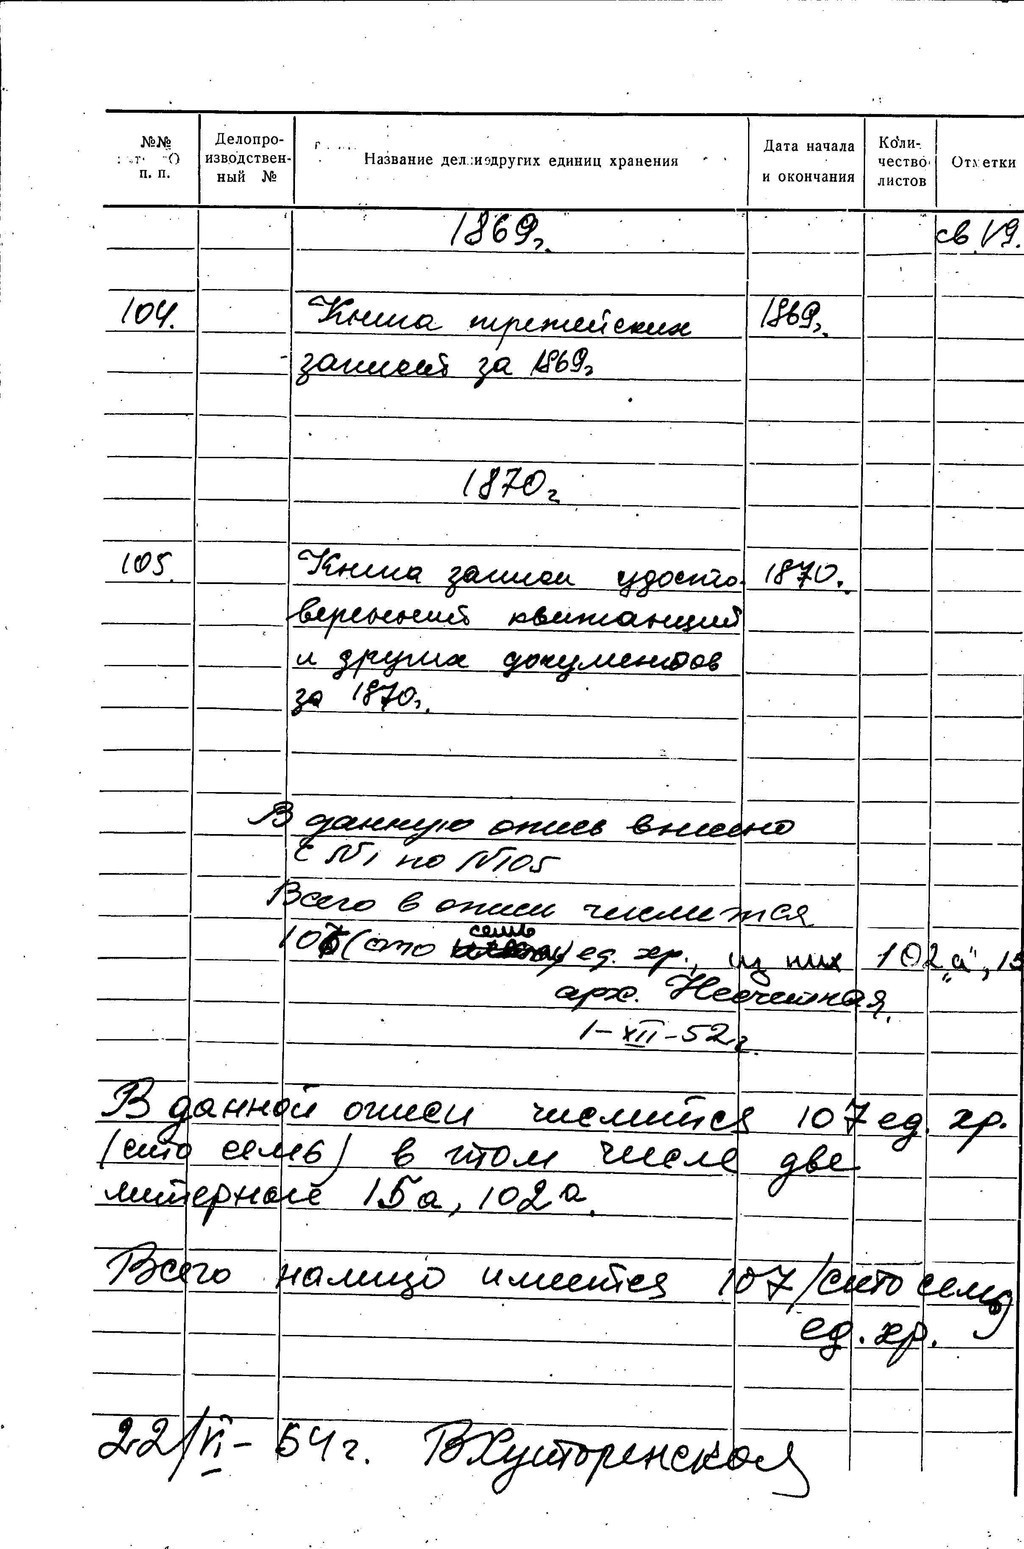 №№ п. п.
Делопроизводственный №
Название дел и других единиц хранения
Дата начала и окончания
Количество листов
Отметки
1869г. св. 19.
104. Книга третейских 1869г.
записей за 1869г.
1870г.
105. Книга записи удосто- 1870г.
верений квитанций
и других документов
за 1870г.
В данную опись внесено
с №1 по №105
Всего в описи числится
семь
107 (сто ед. хр., из них 102 „а", 15
арх. Несчетная.
1-XII-52г.
В данной описи числится 107 ед. хр.
(сто семь) в том числе две
литерные 15а, 102а.
Всего налицо имеется 107 /сто семь/
ед. хр.
22/VI - 54г. ВХуторенская